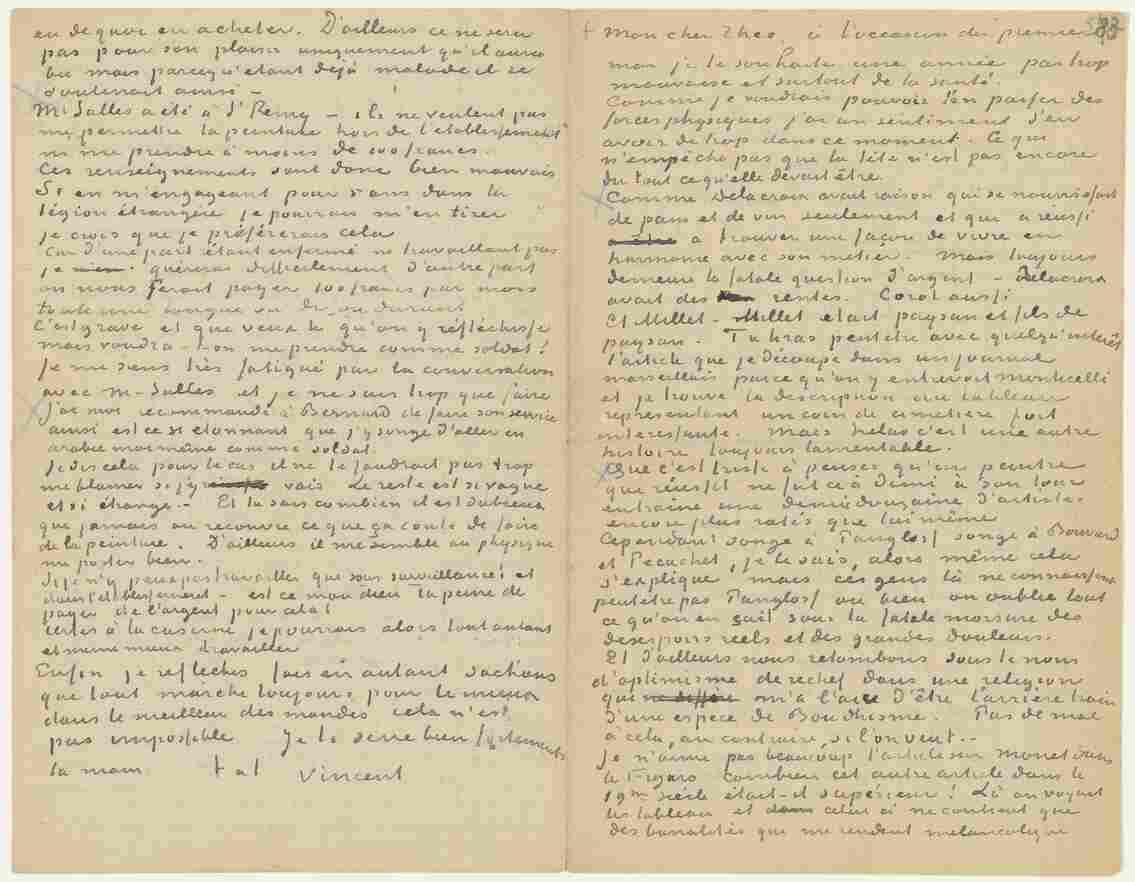 en de quoi en acheter. D'ailleurs ce ne sera
pas pour son plaisir uniquement qu'il aura
bu mais parcequ'étant déjà malade il se
soutenait ainsi –
Mr Salles a été à St Remy – ils ne veulent pas
me permettre la peinture hors de l'etablissement
ni me prendre à moins de 100 francs.
Ces renseignements sont donc bien mauvais
Si en m'engageant pour 5 ans dans la
légion étrangere je pourrais m'en tirer
je crois que je préférerais cela
Car d'une part étant enfermé ne travaillant pas
je guérerai difficilement d'autre part
on nous ferait payer 100 francs par mois
toute une longue vie de fou durant.
C'est grave et que veux tu qu'on y réfléchisse
mais voudra-t-on me prendre comme soldat!
Je me sens très fatigué par la conversation
avec M. Salles et je ne sais trop que faire
j'ai moi recommandé à Bernard de faire son service
aussi est ce si etonnant que j'y songe d'aller en
arabie moi même comme soldat.
Je dis cela pour le cas il ne te faudrait pas trop
me blamer si j'y vais Le reste est si vague
et si étrange. – Et tu sais combien il est dubieux
que jamais on recouvre ce que ça coute de faire
de la peinture. D'ailleurs il me semble au physique
me porter bien.
Si je n'y peux pas travailler que sous surveillance! et
dans l'etablissement – est ce mon dieu la peine de
payer de l'argent pour cela!
certes à la caserne je pourrais alors tout autant
et meme mieux travailler
Enfin je réflechis fais en autant sachons
que tout marche toujours pour le mieux
dans le meilleur des mondes cela n'est
pas impossible Je te serre bien fortement
la main. t à t Vincent
Mon cher Theo, à l'occasion du premier
mai je te souhaite une année pas trop
mauvaise et surtout de la santé.
Comme je voudrais pouvoir t'en passer des
forces physiques j'ai un sentiment d'en
avoir de trop dans ce moment. Ce qui
n'empêche pas que la tête n'est pas encore
du tout ce qu'elle devait être.
Comme Delacroix avait raison qui se nourrissait
de pain et de vin seulement et qui a réussi
à trouver une façon de vivre en
harmonie avec son métier. Mais toujours
demeure la fatale question d'argent – Delacroix
avait des rentes. Corot aussi
Et Millet – Millet etait paysan et fils de
paysan. Tu liras peutetre avec quelqu'intérêt
l'article que je découpe dans un journal
marseillais parce qu'on y entrevoit Monticelli
et je trouve la description du tableau
représentant un coin de cimetière fort
interessante. Mais helas c'est une autre
histoire toujours lamentable.
Que c'est triste à penser qu'un peintre
qui réussit ne fut ce à demi à son tour
entraine une demie douzaine d'artistes
encore plus ratés que lui même
Cependant songe à Pangloss songe à Bouvard
et Pecuchet, je le sais, alors même cela
s'explique mais ces gens là ne connaissent
peutetre pas Pangloss ou bien on oublie tout
ce qu'on en sait sous la fatale morsure des
desespoirs réels et des grandes douleurs.
Et d'ailleurs nous retombons sous le nom
d'optimisme de rechef dans une religion
qui m'a l'air d'être l'arrière train
d'une espece de Boudhisme. Pas de mal
à cela, au contraire, si l'on veut. –
Je n'aime pas beaucoup l'article sur Monet dans
le Figaro combien cet autre article dans le
19me siècle était-il supérieur! Là on voyait
les tableaux et celui ci ne contient que
des banalités qui me rendent melancolique